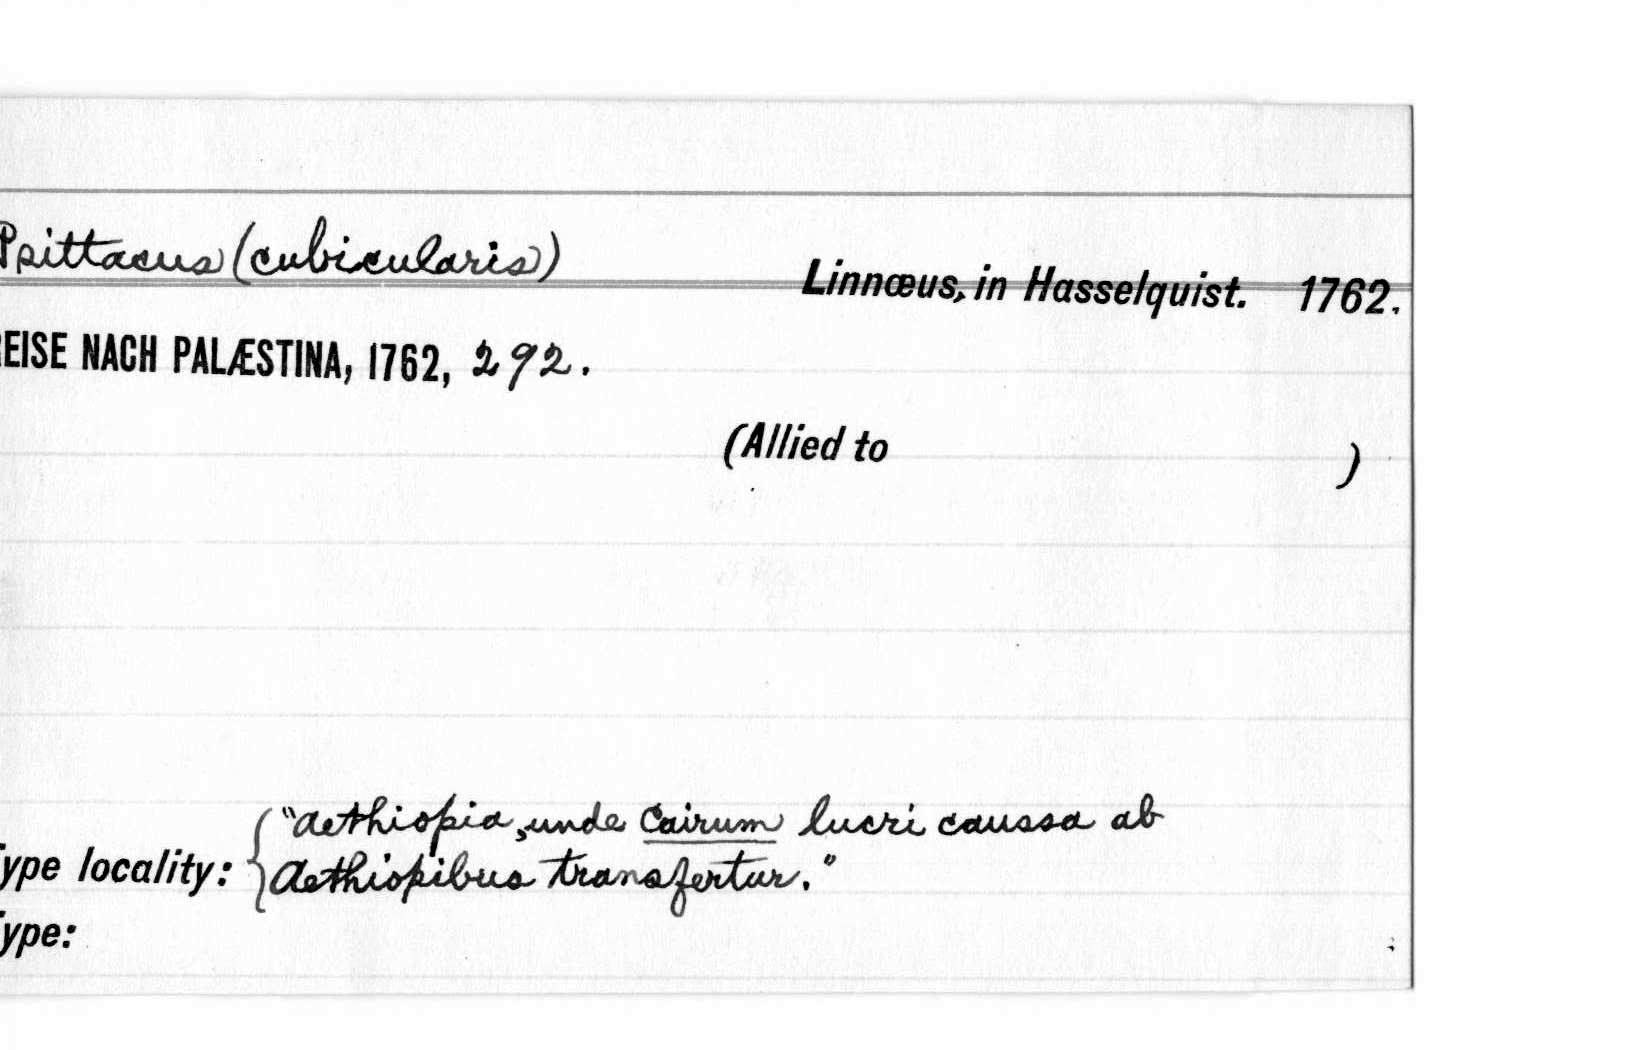 Psittacus (cubicularis)
Linnæus, in Hasselquist. 1762.
REISE NACH PALÆSTINA, 1762, 292.
(Allied to )
"Aethiopia, unde Cairum lucri caussa ab
Type locality: Aethiopibus transfertur."
Type: